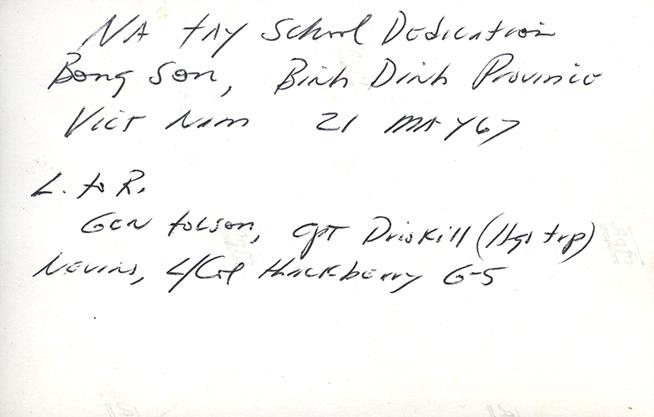 NA TAY School Dedication
Bong Son, Binh Dinh Province
Viet Nam 21 MAY 67
L. to R.
GEN Tolson, CPT Driskill (Hqs trp)
Nevins, L/Col Huckberry G-5